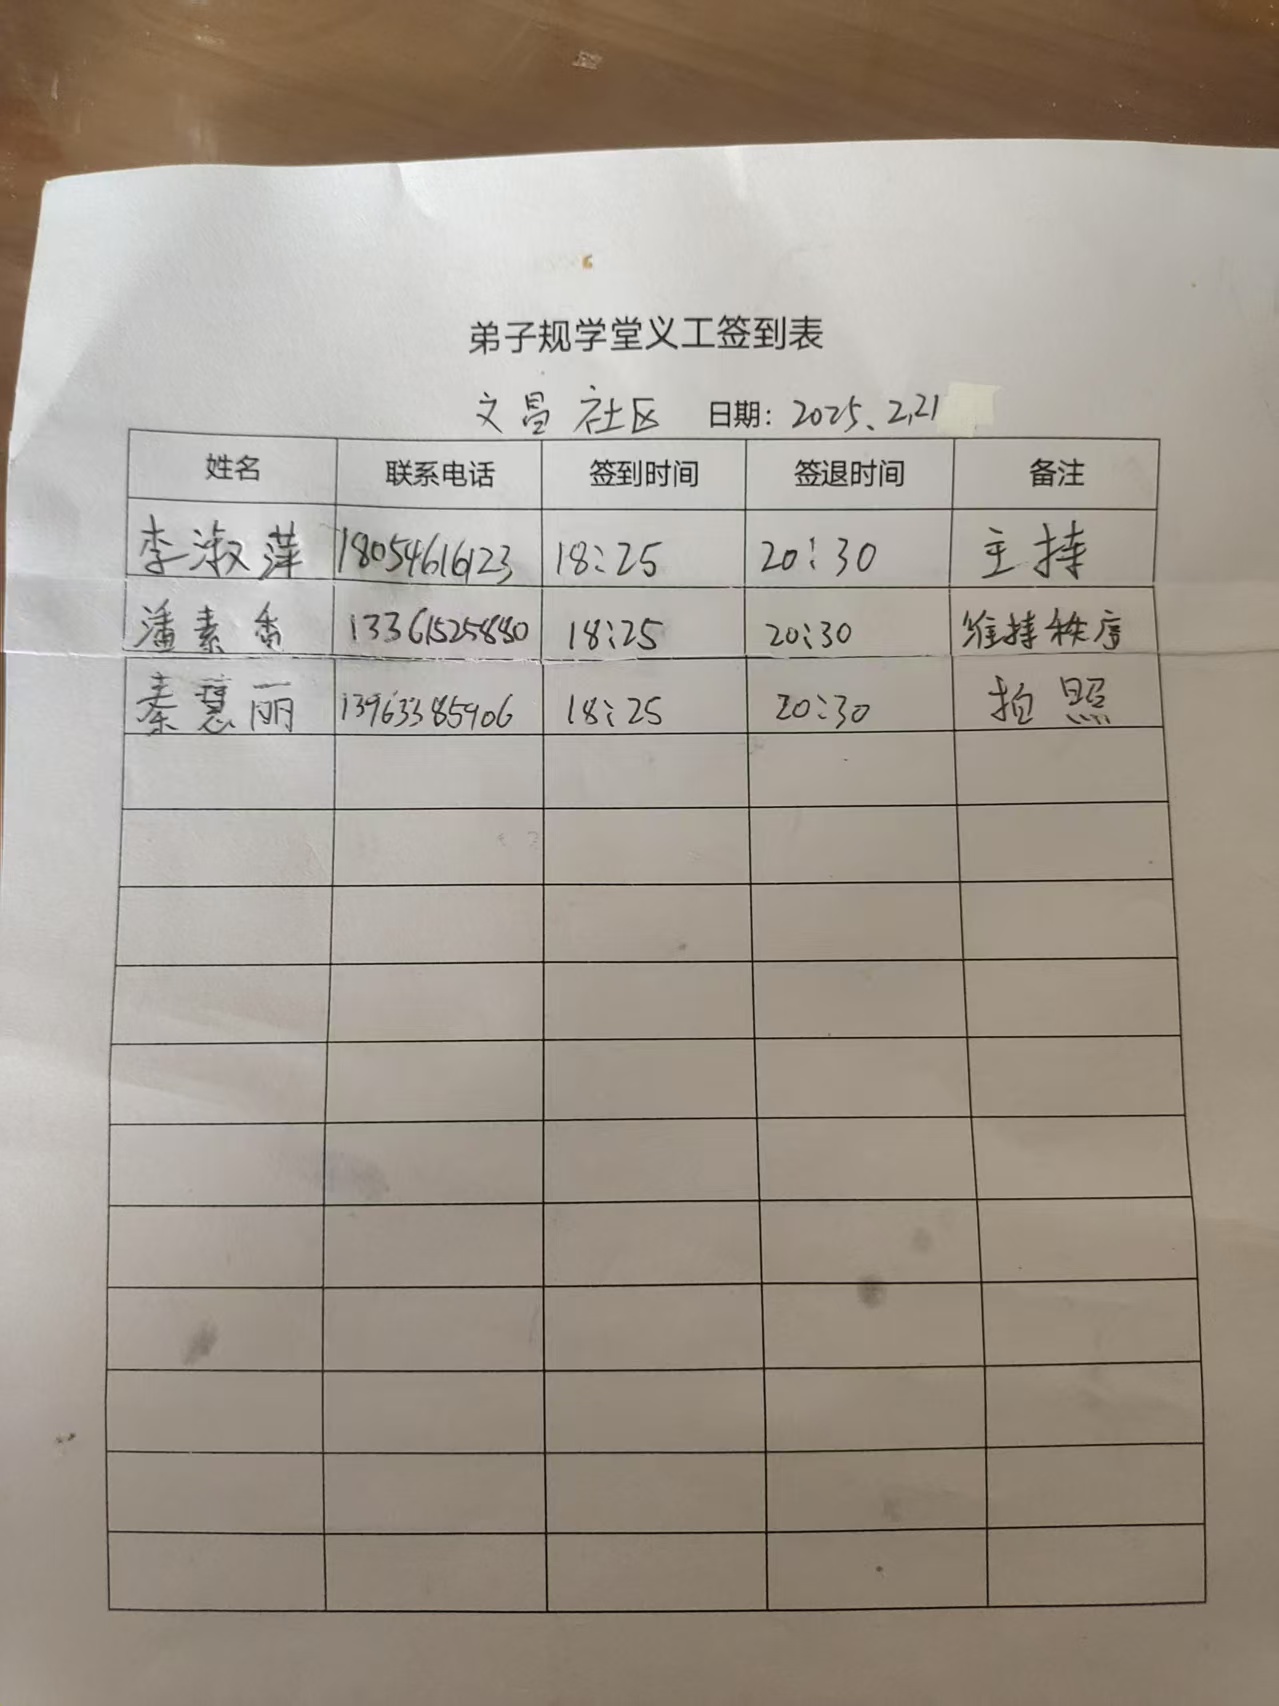 弟子规学堂义工签到表
文昌社区 日期：2025.2.21
姓名 联系电话 签到时间 签退时间 备注
李淑萍 18054616123 18:25 20:30 主持
潘素香 13361525880 18:25 20:30 维持秩序
秦慧丽 13963385906 18:25 20:30 拍照